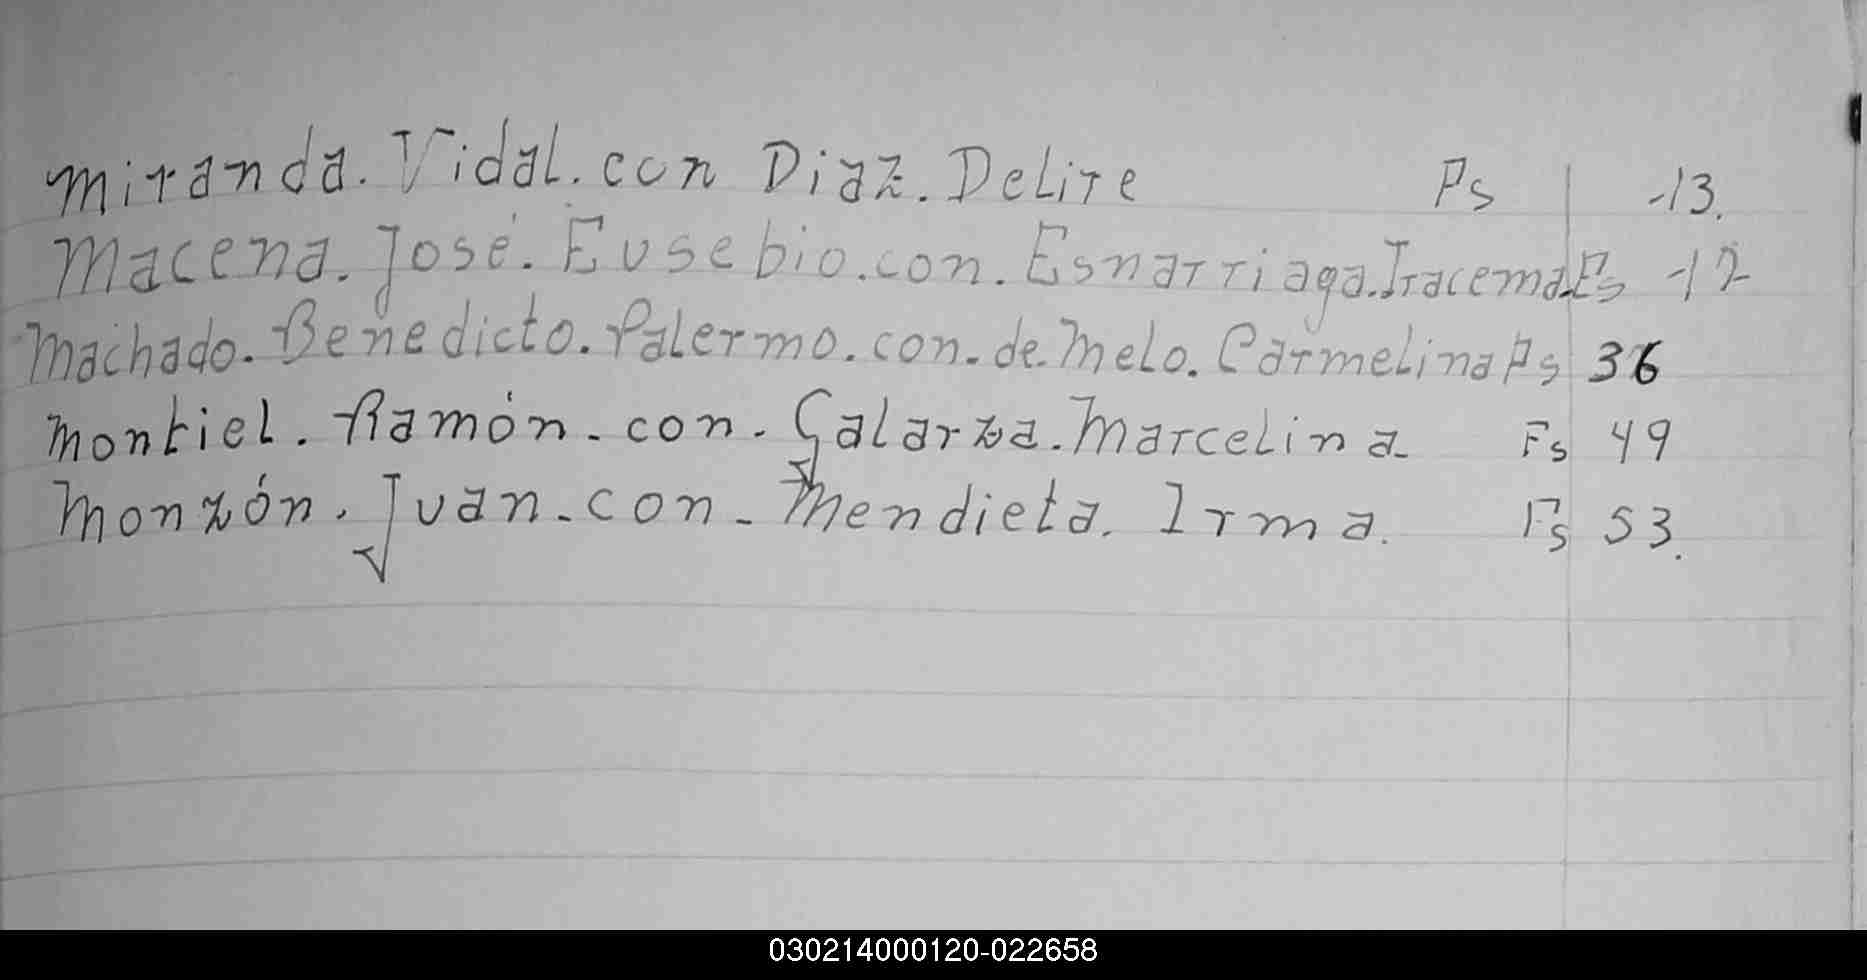 Miranda. Vidal. con Diaz. Delire Ps -13.
Macena. José. Eusebio. con. Esnarriaga. Iracema. Fs -12
Machado. Benedicto. Palermo. con. de. Melo. Carmelina Ps 36
Montiel. Ramón - con - Galarza. Marcelina - Fs 49
Monzón. Juan - con - Mendieta. Irma. Fs 53.
030214000120-022658